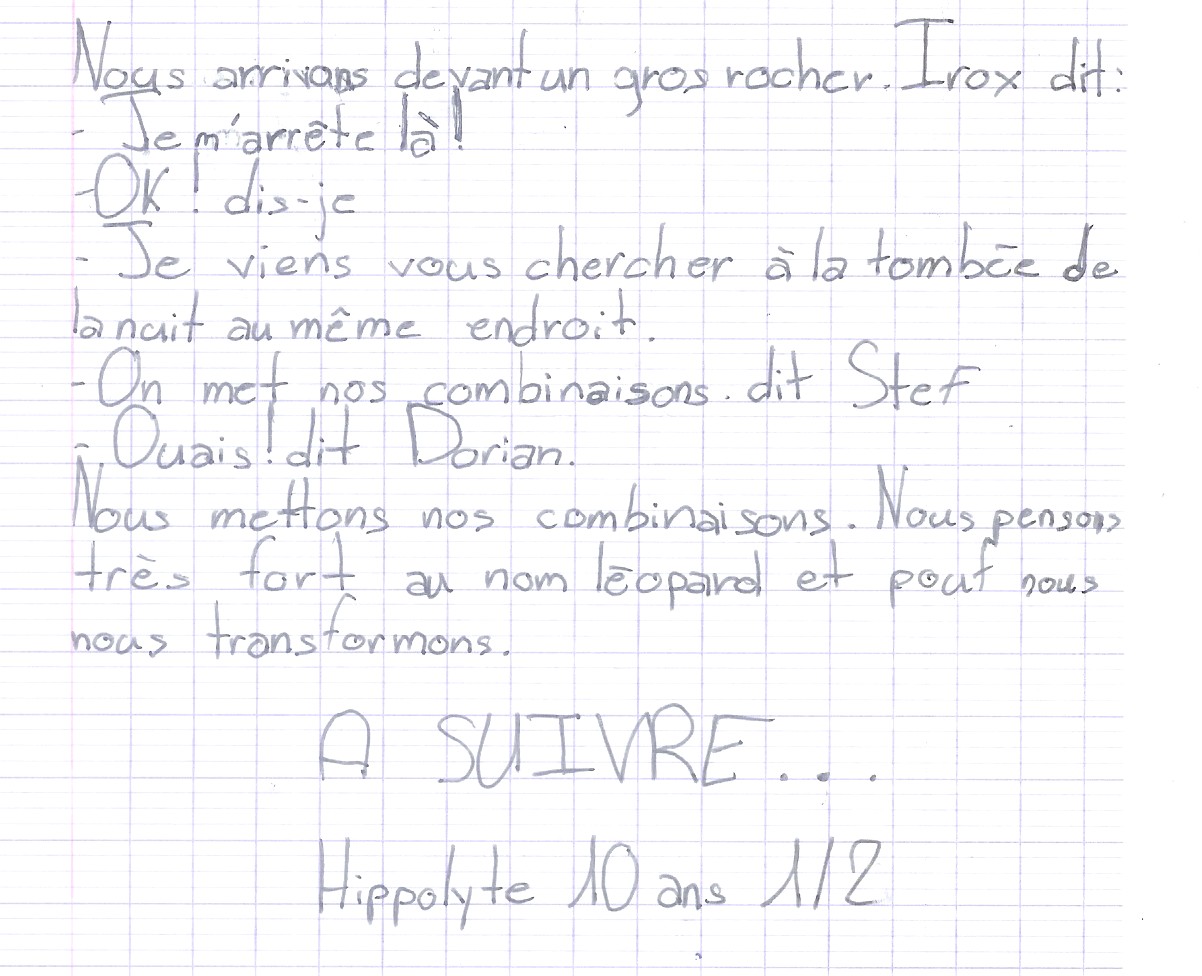 Nous arrivons devant un gros rocher. Irox dit:
- Je m'arrête là!
-OK! dis-je
- Je viens vous chercher à la tombée de
la nuit au même endroit.
-On met nos combinaisons. dit Stef
-Ouais! dit Dorian.
Nous mettons nos combinaisons. Nous pensons
très fort au nom léopard et pouf nous
nous transformons.
A SUIVRE...
Hippolyte 10 ans 1/2